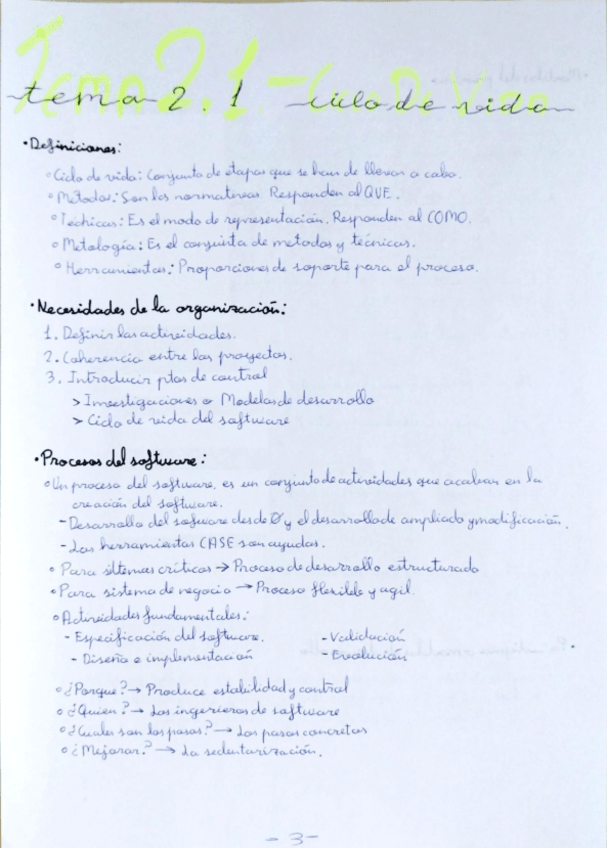 Tema 2.1.- Ciclo De Vida
tema 2.1 ciclo de vida
• Definiciones:
° Ciclo de vida: Conjunto de etapas que se han de llevar a cabo.
° Métodos: Son las normativas. Responden al QUE.
° Técnicas: Es el modo de representación. Responden al COMO.
° Metología: Es el conjunto de metodos y técnicas.
° Herramientas: Proporciones de soporte para el proceso.
• Necesidades de la organización:
1. Definir las actividades.
2. Coherencia entre los proyectos.
3. Introducir ptos de control
> Investigaciones o Modelos de desarrollo
> Ciclo de vida del software
• Procesos del software:
° Un proceso del software, es un conjunto de actividades que acaban en la
creación del software.
- Desarrollo del software desde 0 y el desarrollo de ampliado y modificación.
- Las herramientas CASE son ayudas.
° Para sitemas críticos → Proceso de desarrollo estructurado
° Para sistema de negocio → Proceso flexible y agil.
° Actividades fundamentales:
- Especificación del software. - Validación
- Diseño e implementación - Evolución
° ¿Porque? → Produce estabilidad y control
° ¿Quien? → Los ingenieros de software
° ¿Cuales son los pasos? → Los pasos concretos
° ¿Mejorar? → La sedentarización.
- 3 -